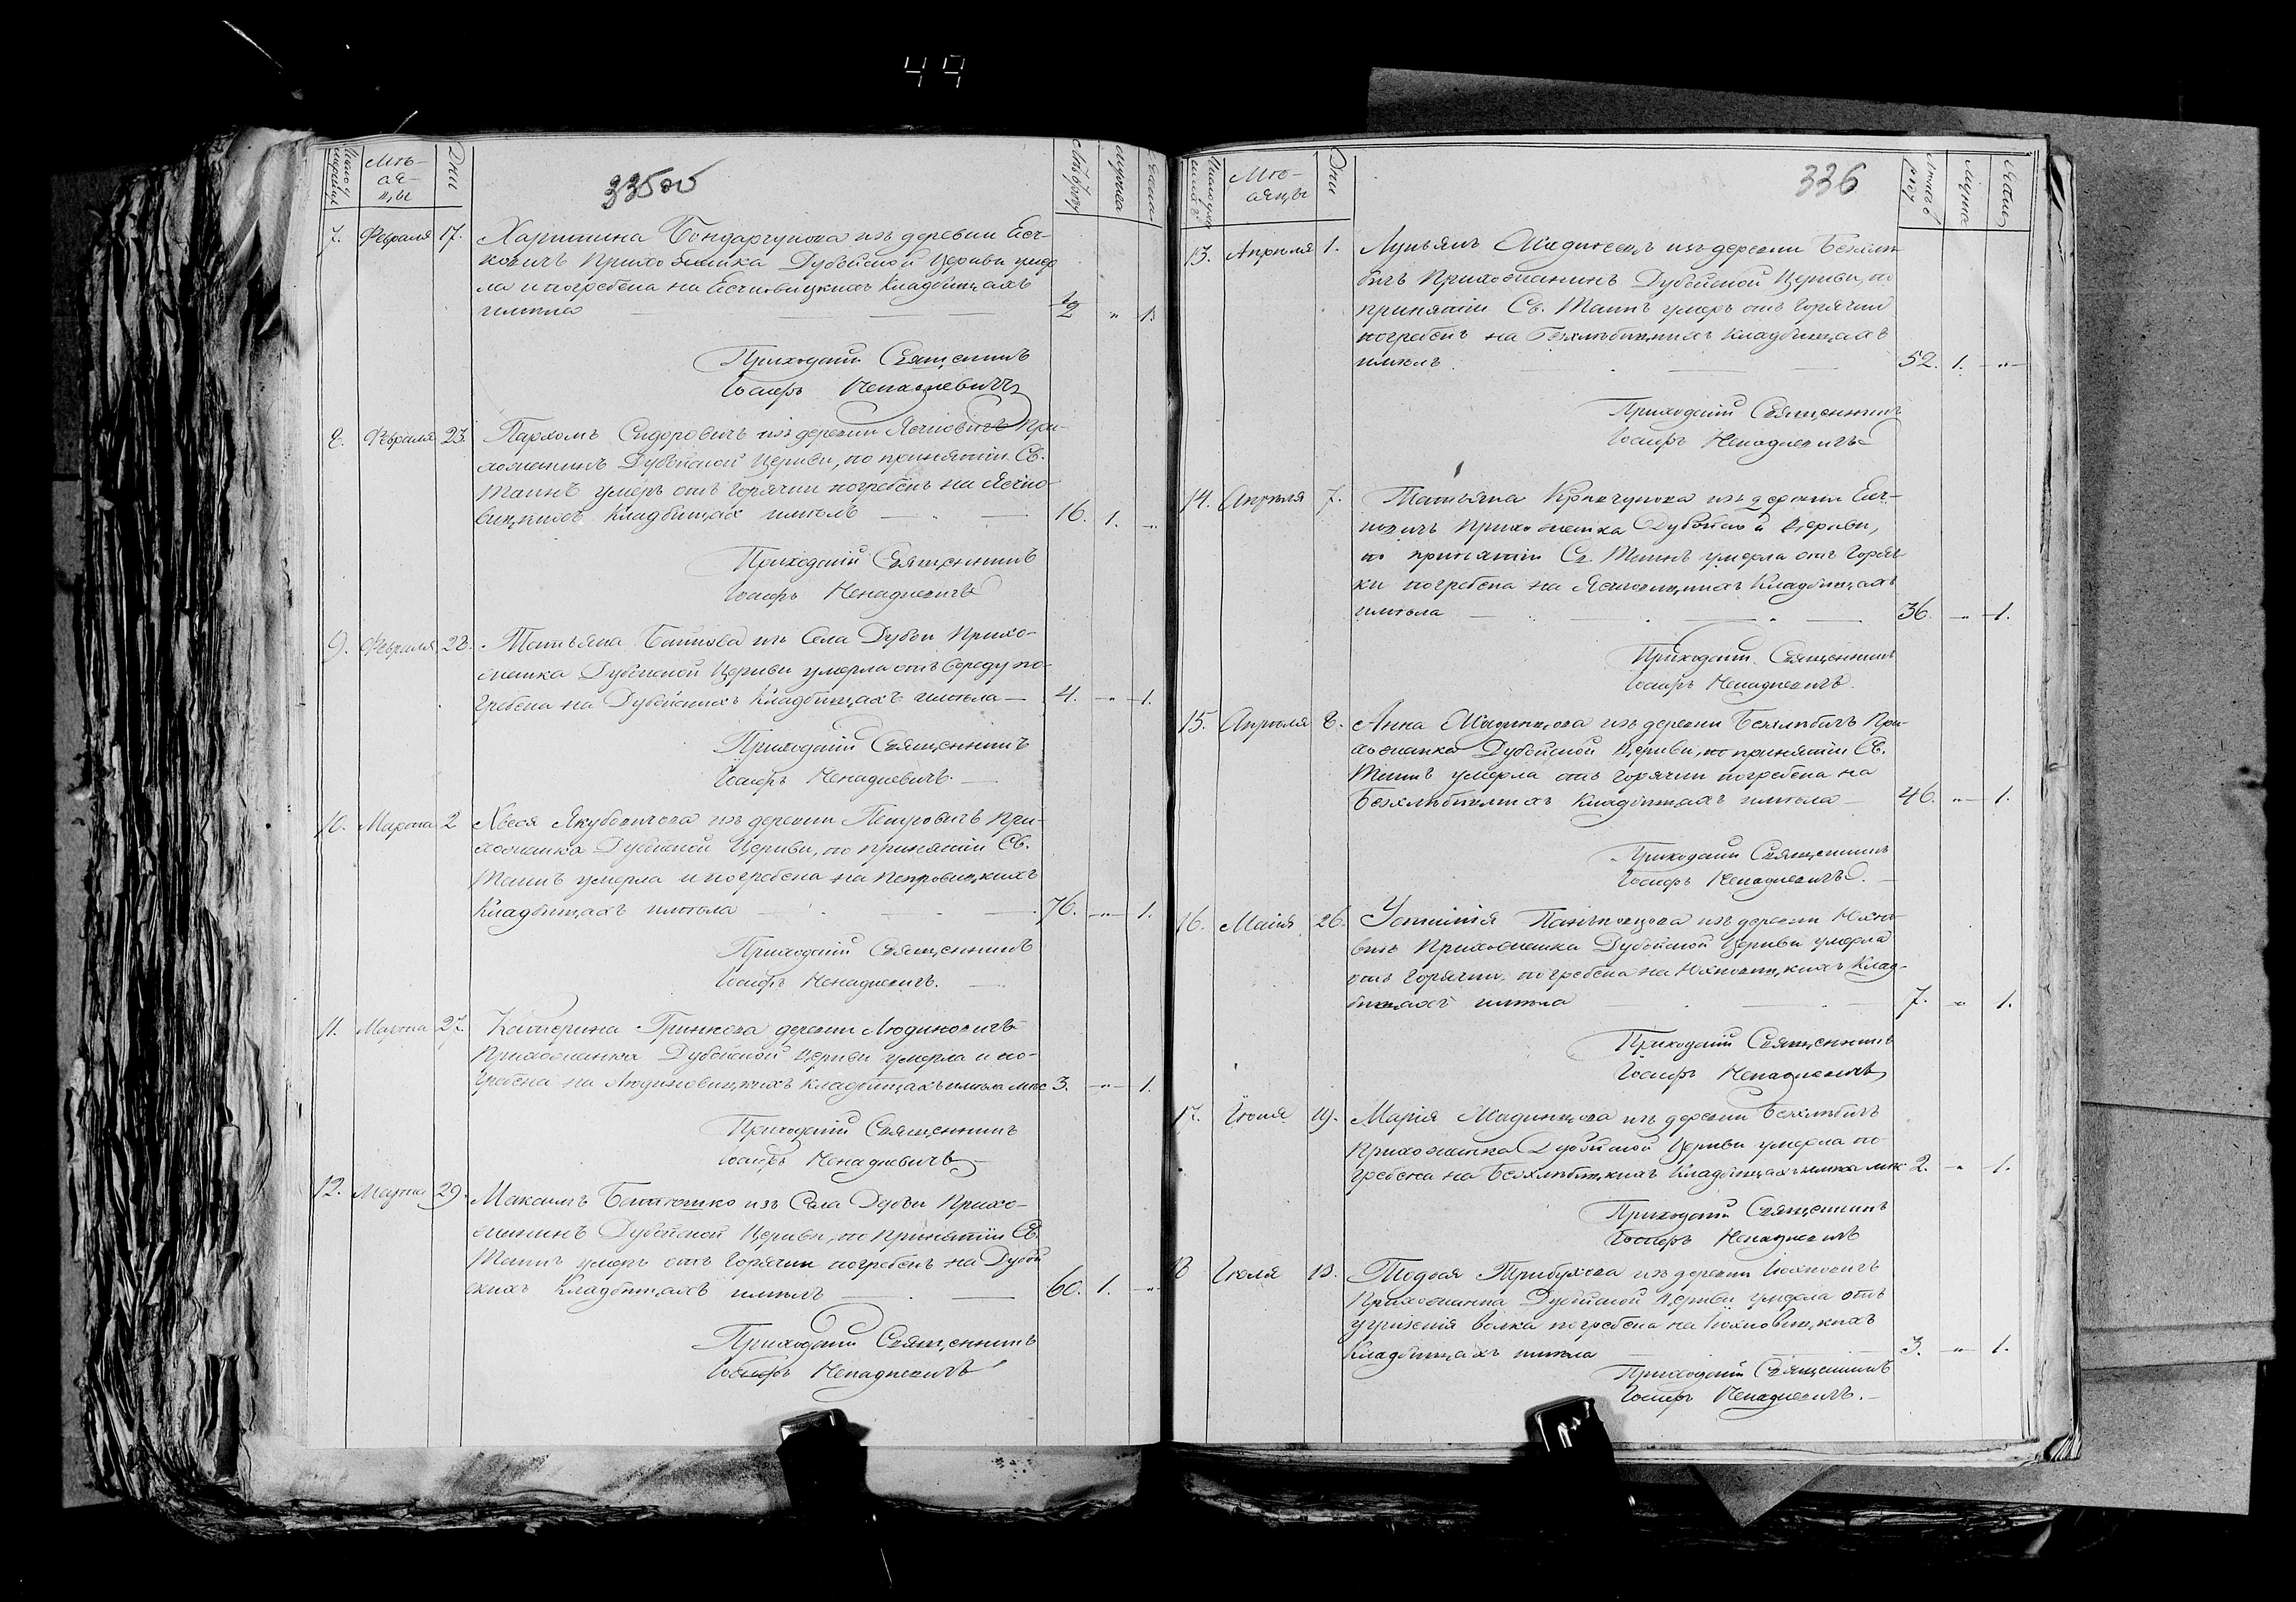 44
Число умершихъ
Мѣ-
ся-
цы
Дни
335об
Мужска
7. Февраля 17. Харитина Бондарчукова изъ деревни Ясч-
ковичъ Прихожанка Дубойской Церкви умер
ла и погребена на Ясчковицкихъ Кладбищахъ
имѣла 1/2 „ 1.
Приходскій Священникъ
Іосифъ Ненадкевичъ
8. Февраля 23. Пархомъ Сидоровичъ изъ деревни Ясчковичъ При-
хожанинъ Дубойской Церкви, по принятіи Св.
Таинъ умеръ отъ Горячки погребенъ на Ясчко-
вицкихъ Кладбищах имѣлъ 16. 1. „
Приходскій Священникъ
Іосифъ Ненадкевичъ
9. Февраля 28. Татьяна Башкова изъ Села Дубои Прихо-
жанка Дубойской Церкви умерла отъ вереду по-
гребена на Дубойскихъ Кладбищахъ имѣла 4. „ 1.
Приходскій Священникъ
Іосифъ Ненадкевичъ.
10. Марта 2 Хвеся Якубовичова изъ деревни Петровичъ При-
хожанка Дубойской Церкви, по принятіи Св.
Таинъ умерла и погребена на Петровицкихъ
Кладбищахъ имѣла 76. „ 1.
Приходскій Священникъ
Іосифъ Ненадкевичъ.
11. Марта 27. Катерина Гринкова деревни Людиновичъ
Прихожанка Дубойской Церкви умерла и по-
гребена на Людиновицкихъ Кладбищахъ имѣла мѣс 3. „ 1.
Приходскій Священникъ
Іосифъ Ненадкевичъ
12. Марта 29. Максимъ изъ Села Дубои Прихо-
жанинъ Дубойской Церкви, по принятіи Св.
Таинъ умеръ отъ Горячки погребенъ на Дубой
скихъ Кладбищахъ имѣлъ 60. 1. „
Приходскій Священникъ
Іосифъ Ненадкевичъ
Мѣ-
сяцы
Дни
336
Мужска
13. Апрѣля 1. Лукьянъ изъ деревни Безхлѣ
бичъ Прихожанинъ Дубойской Церкви, по
принятіи Св. Таинъ умеръ отъ Горячки
погребенъ на Безхлѣбицкихъ Кладбищахъ
имѣлъ 52. 1. „
Приходскій Священникъ
Іосифъ Ненадкевичъ
14. Апрѣля 7. Татьяна изъ деревни Ясч-
ковичъ Прихожанка Дубойской Церкви,
по принятіи Св. Таинъ умерла отъ Горяч
ки погребена на Ясчковицкихъ Кладбищахъ
имѣла 36. „ 1.
Приходскій Священникъ
Іосифъ Ненадкевичъ.
15. Апрѣля 8. Анна изъ деревни Безхлѣбичъ При-
хожанка Дубойской Церкви, по принятіи Св.
Таинъ умерла отъ Горячки погребена на
Безхлѣбицкихъ Кладбищахъ имѣла 46. „ 1.
Приходскій Священникъ
Іосифъ Ненадкевичъ.
16. Маія 26. Устинія Панковцова изъ деревни Юхно
вичъ Прихожанка Дубойской Церкви умерла
отъ Горячки, погребена на Юхновицкихъ Клад-
бищахъ имѣла 7. „ 1.
Приходскій Священникъ
Іосифъ Ненадкевичъ
17. 19. Марія изъ деревни Безхлѣбичъ
Прихожанка Дубойской Церкви умерла по
гребена на Безхлѣбицкихъ Кладбищахъ имѣла мѣс 2. „ 1.
Приходскій Священникъ
Іосифъ Ненадкевичъ
18 Іюля 13. Тодося Трибухова изъ деревни Іохновичъ
Прихожанка Дубойской Церкви умерла отъ
угризенія волка погребена на Іохновицкихъ
Кладбищахъ имѣла 3. „ 1.
Приходскій Священникъ
Іосифъ Ненадкевичъ.